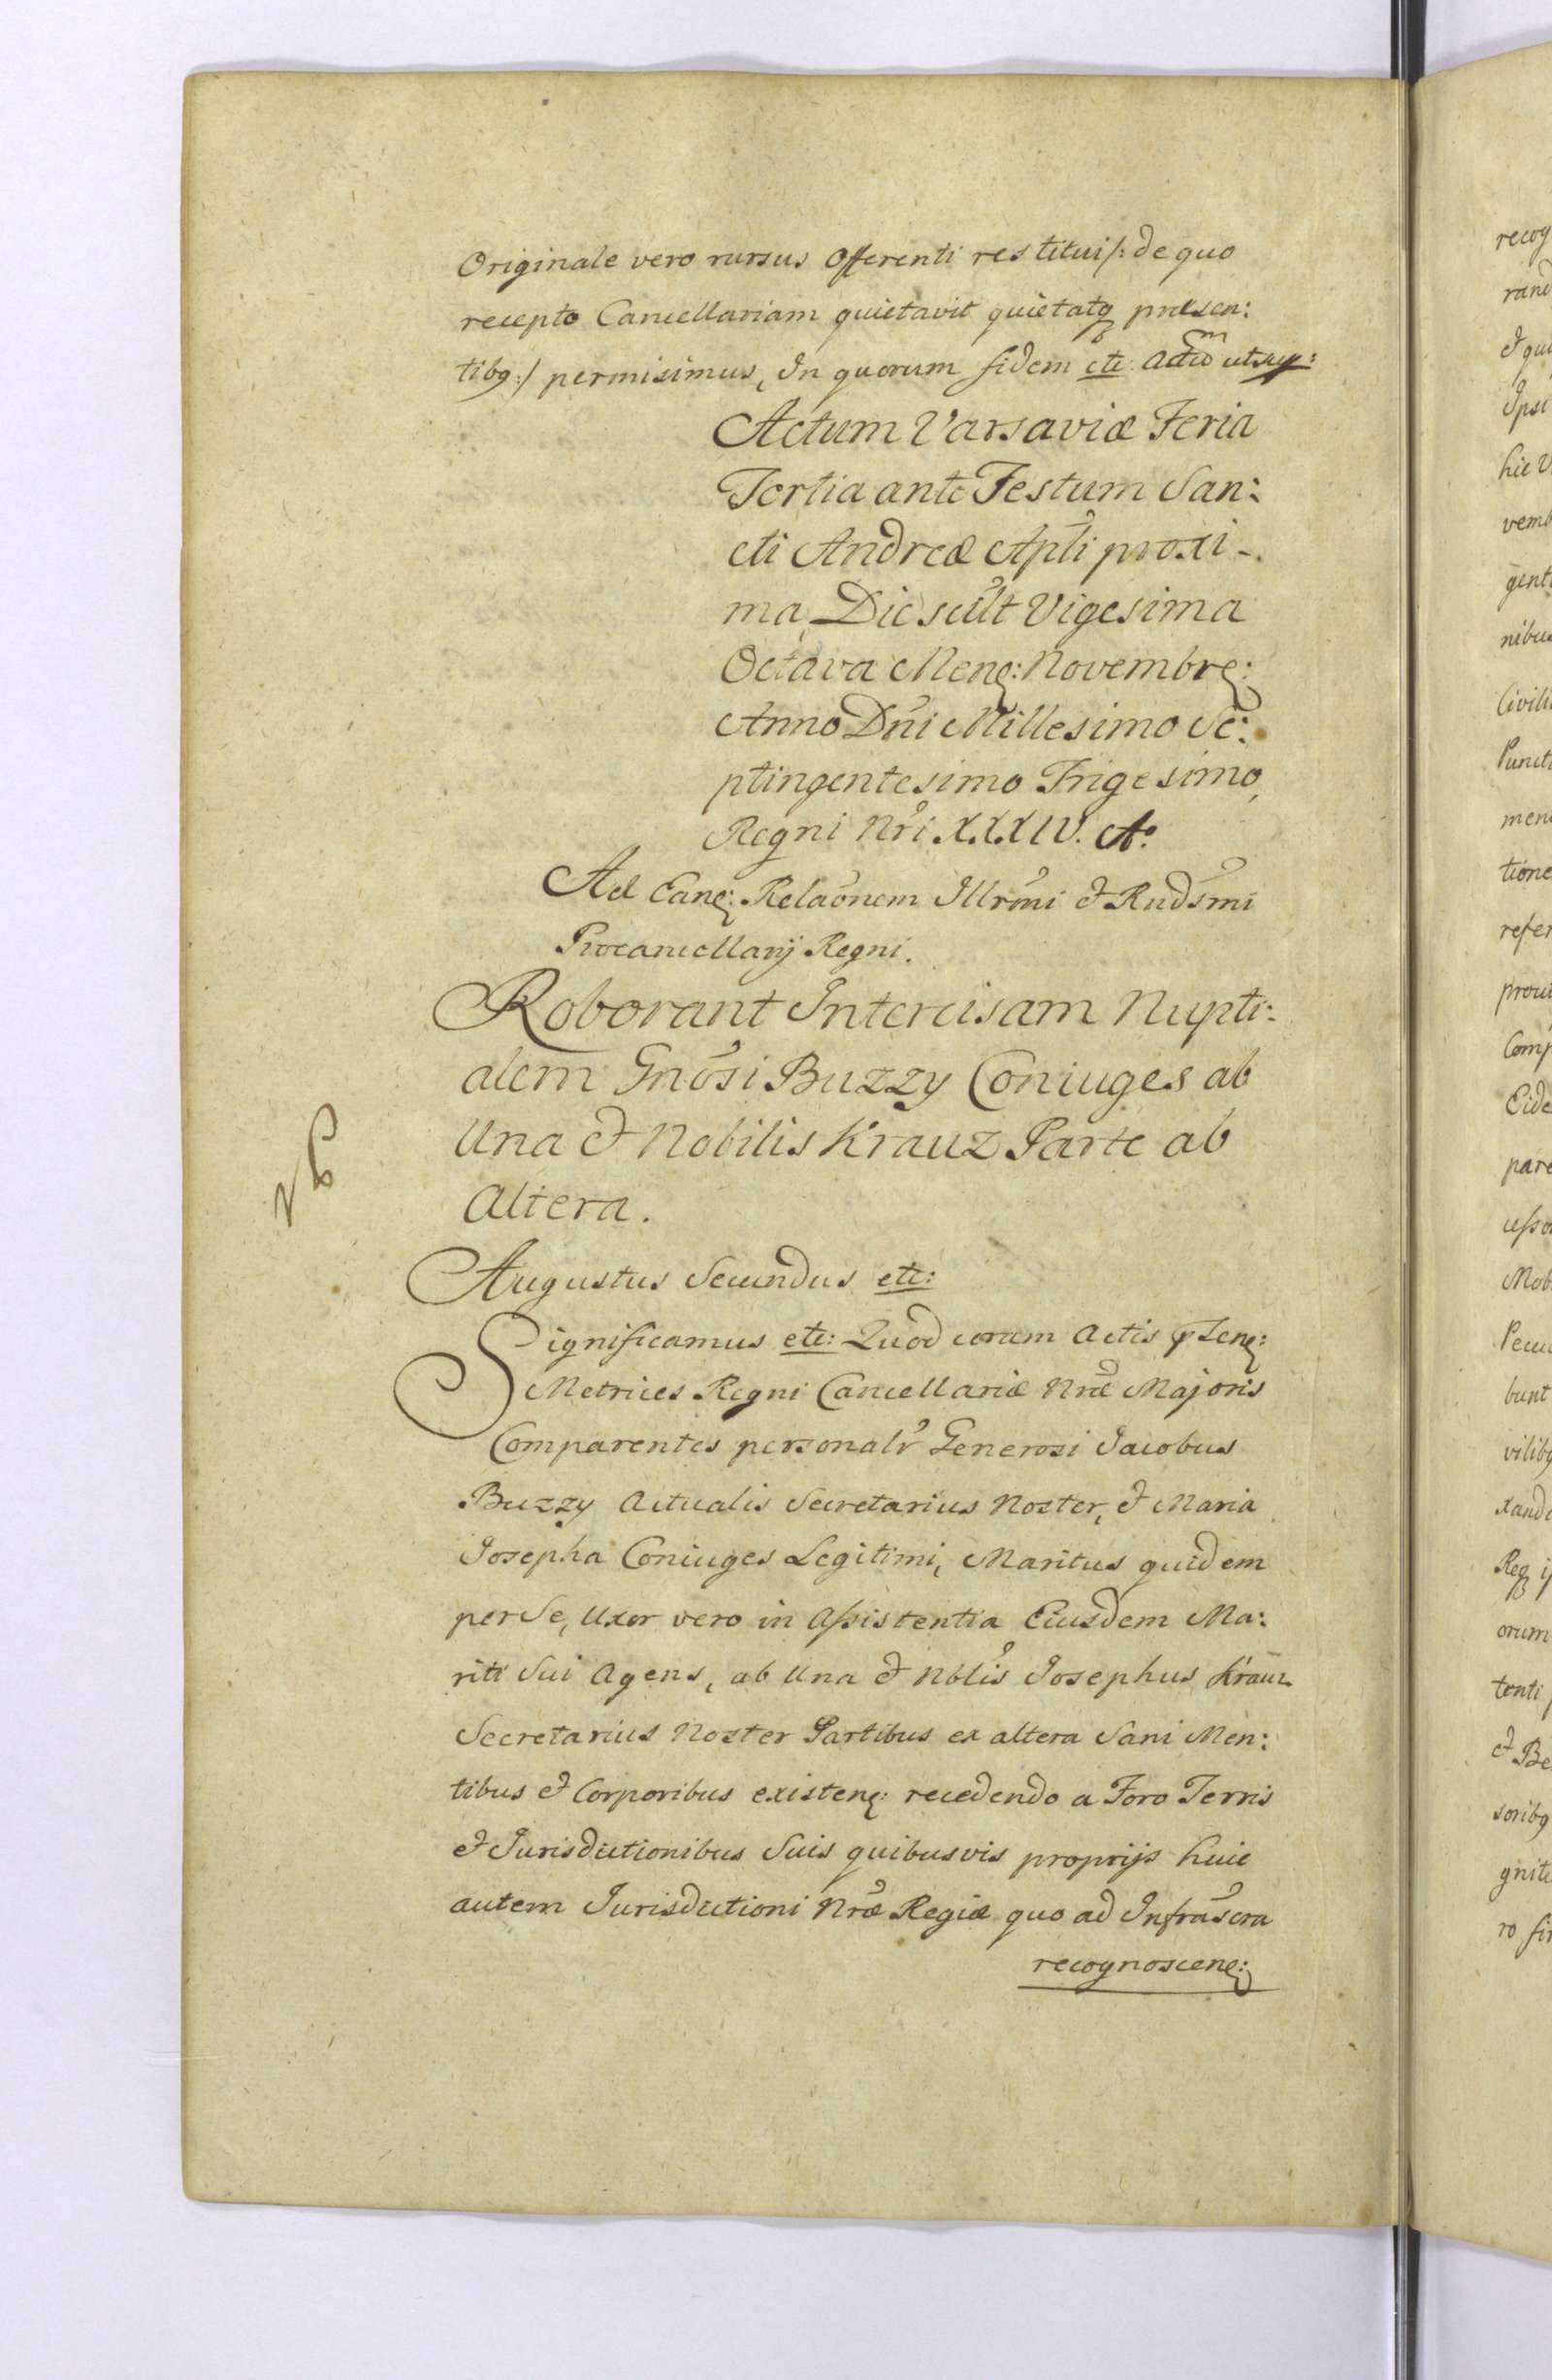 Originale vero rursus Offerenti restitui /: de quo
recepto Cancellariam quietavit quietatq præsen:
tibq :/ permisimus, In quorum fidem etc
Actum Varsaviæ Feria
Tertia ante Festum San:
cti Andreæ Apli proxi-
ma, Die scilt Vigesima
Octava Mens: Novembrs:
Anno Dni Millesimo Se:
ptingentesimo Trigesimo,
Regni Nri XXXIV. Ao
Ad Eans: Relaonem Illrmi & Rndsmi
Procancellarij Regni.
Roborant Intercisam Nupti:
alem Gnosi Buzzy Coniuges ab
Una & Nobilis Krauz Parte ab
Altera.
Augustus Secundus etc:
Significamus etc: Quod coram Actis
Metrices Regni Cancellariæ Nræ Majoris
Comparentes personalr Generosi Jacobus
Buzzy Actualis Secretarius Noster, & Maria
Josepha Coniuges Legitimi, Maritus quidem
per Se, Uxor vero in Assistentia Eiusdem Ma:
riti Sui Agens, ab Una & Nblis Josephus Krauz
Secretarius Noster Partibus ex altera Sani Men:
tibus & Corporibus existens: recedendo a Foro Terris
& Jurisdictionibus Suis quibusvis proprijs huic
autem Jurisdictioni Nræ Regiæ quo ad Infrascra
recognoscens:
recog
rand
& qui
Ipsi
hic V
vemb
gent
nibus
Civili
Punct
men
tione
refer
prou
Comp
Eide
pare
cesso
Mob
Pecu
bunt
vilibq
xand
orum
tenti
& Be
soribq
gniti
ro fir